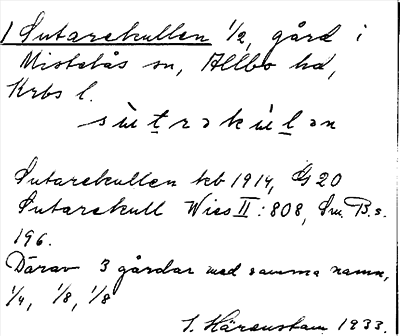 1 Sutarekullen 1/2, gård i
Mistelås sn, Allbo hd,
Krbs l.
sùt̲rəkùl̲ən
Sutarekullen kb 1914, GS 20
Sutarekull Wies II:808, Sm. B.s.
196.
Därav 3 gårdar med samma namn,
1/4, 1/8, 1/8
I. Härenstam 1933.